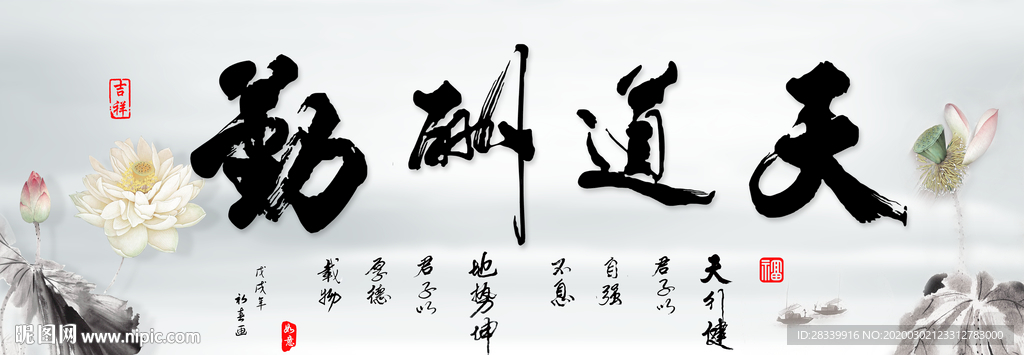 天道酬勤
吉祥
福
天行健
君子以
自强
不息
地势坤
君子以
厚德
载物
戊戌年
如意
昵图网 www.nipic.com
ID:28339916 NO:20200302123312783000